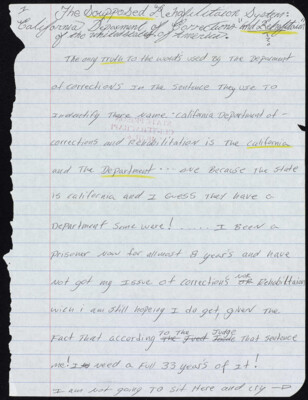 The Supposed Rehabilitation System
California Department of Corrections "and Rehabilitation"
of the United States of American.
The only Truth to the words used By The Department
of corrections In The Sentence They use To
Indentify There name. California Department of -
corrections and Rehabilitation is The California
and The Department ---- are Because The State
is California, and I Guess They have a
Department Some were! ..... I Been a
prisoner now for allmost 8 year's and have
Not got my Issue of correction's Nor Rehabilitation
wich i am Still hopeing I do get, given The
Fact That according To The Judge That Sentence
me! I need a full 33 years of It!
I am not going To Sit Here and cry